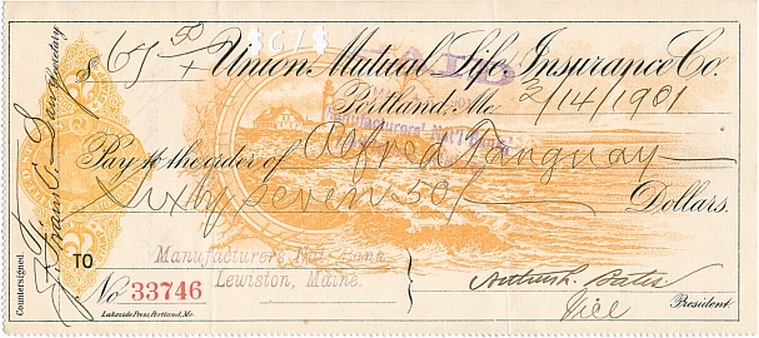 $67 50/+ Union Mutual Life Insurance Co.
$67$
PAID
Portland, Me. 3/14/1901
Manufacturers' Nat'l Bank
Pay to the order of Alfred Tanguay
Sixty seven 50/ Dollars.
TO
Manufacturers Nat. Bank
Lewiston, Maine.
No 33746
Arthur L. Bates
Vice President.
Lakeside Press, Portland, Me.
Countersigned.
J. Frank Lang Secretary